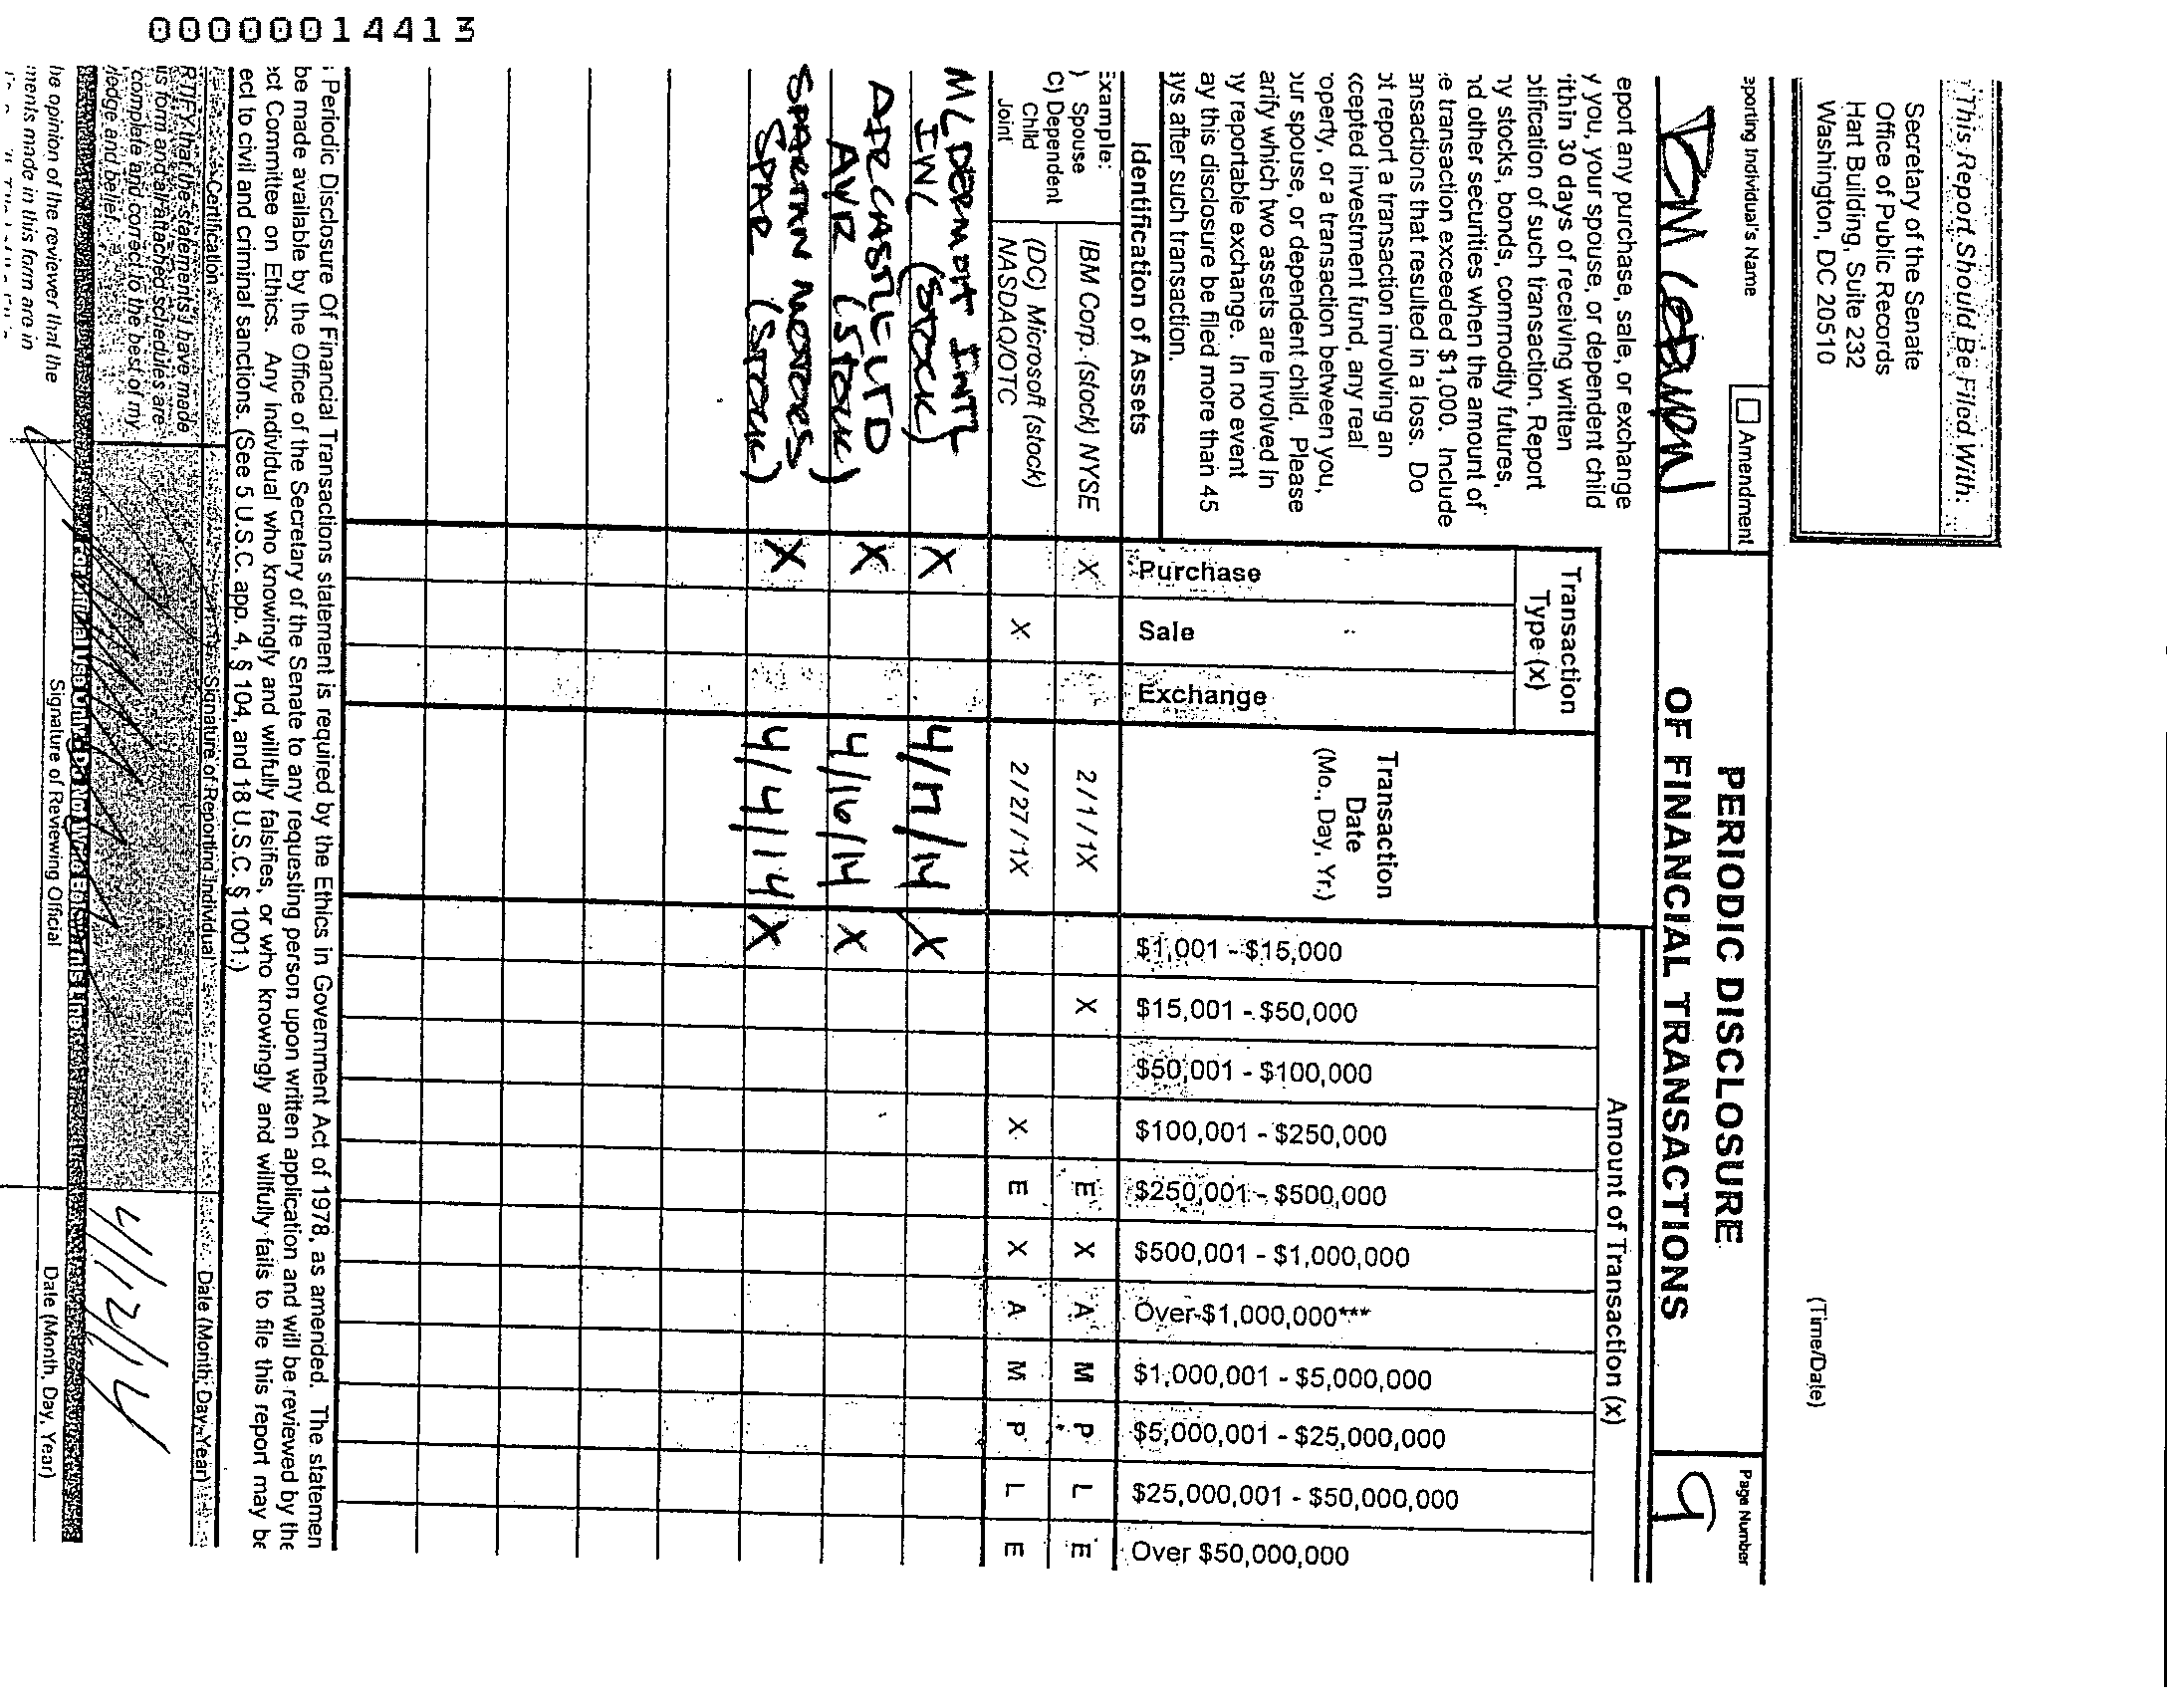 00000014413
This Report Should Be Filed With:
Secretary of the Senate
Office of Public Records
Hart Building, Suite 232
Washington, DC 20510
(Time/Date)
eporting Individual's Name
Amendment
PERIODIC DISCLOSURE
OF FINANCIAL TRANSACTIONS
Page Number
9
eport any purchase, sale, or exchange
y you, your spouse, or dependent child
ithin 30 days of receiving written
otification of such transaction. Report
ny stocks, bonds, commodity futures,
nd other securities when the amount of
e transaction exceeded $1,000. Include
ansactions that resulted in a loss. Do
ot report a transaction involving an
xcepted investment fund, any real
operty, or a transaction between you,
our spouse, or dependent child. Please
arify which two assets are involved in
ny reportable exchange. In no event
ay this disclosure be filed more than 45
ays after such transaction.
Identification of Assets
Transaction
Type (x)
Purchase
Sale
Exchange
Transaction
Date
(Mo., Day, Yr.)
Amount of Transaction (x)
$1,001 - $15,000
$15,001 - $50,000
$50,001 - $100,000
$100,001 - $250,000
$250,001 - $500,000
$500,001 - $1,000,000
Over $1,000,000***
$1,000,001 - $5,000,000
$5,000,001 - $25,000,000
$25,000,001 - $50,000,000
Over $50,000,000
Example:
) Spouse
C) Dependent
Child
Joint
IBM Corp. (stock) NYSE X 2/1/1X X E X A M P L E
(DC) Microsoft (stock)
NASDAQ/OTC X 2/27/1X X E X A M P L E
MCDERMOTT INTL
INC (STOCK) X 4/17/14 X
AIRCASTLE LTD
AYR (STOCK) X 4/16/14 X
SPARTAN MOTORS
SPAR (STOCK) X 4/4/14 X
Periodic Disclosure Of Financial Transactions statement is required by the Ethics in Government Act of 1978, as amended. The statemen
be made available by the Office of the Secretary of the Senate to any requesting person upon written application and will be reviewed by the
ct Committee on Ethics. Any Individual who knowingly and willfully falsifies, or who knowingly and willfully fails to file this report may be
ect to civil and criminal sanctions. (See 5 U.S.C. app. 4, § 104, and 18 U.S.C. § 1001.)
Certification
Signature of Reporting Individual
Date (Month, Day, Year)
RTIFY that the statements I have made
is form and all attached schedules are
complete and correct to the best of my
ledge and belief.
he opinion of the reviewer that the
ments made in this form are in
Signature of Reviewing Official
Date (Month, Day, Year)